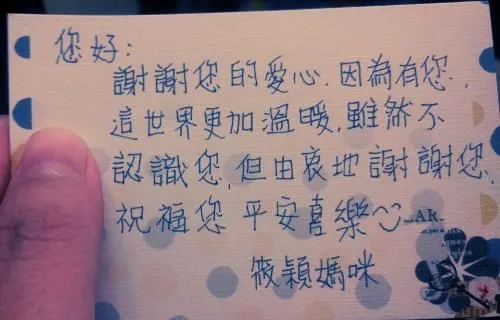 您好:
謝謝您的愛心.因為有您,
這世界更加溫暖,雖然不
認識您,但由哀地謝謝您,
祝福您 平安喜樂
AR
筱穎媽咪